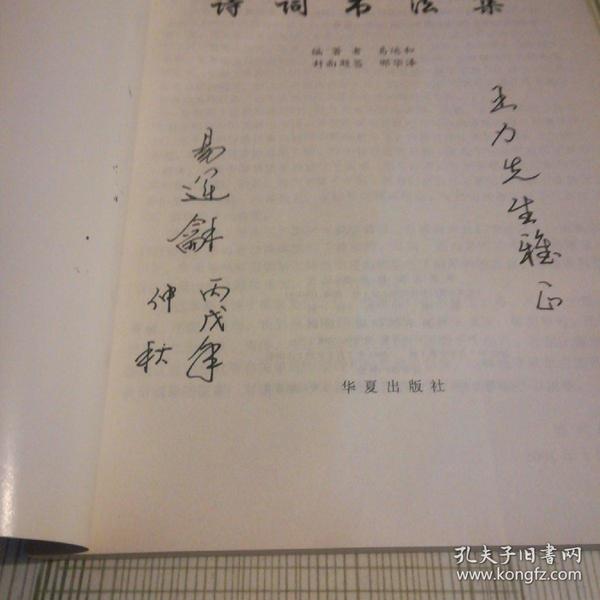 诗词书法集
编著者 易运和
封面题签 
王力先生雅正
易运龢
丙戌年
仲秋
华夏出版社
孔夫子旧书网
www.kongfz.com